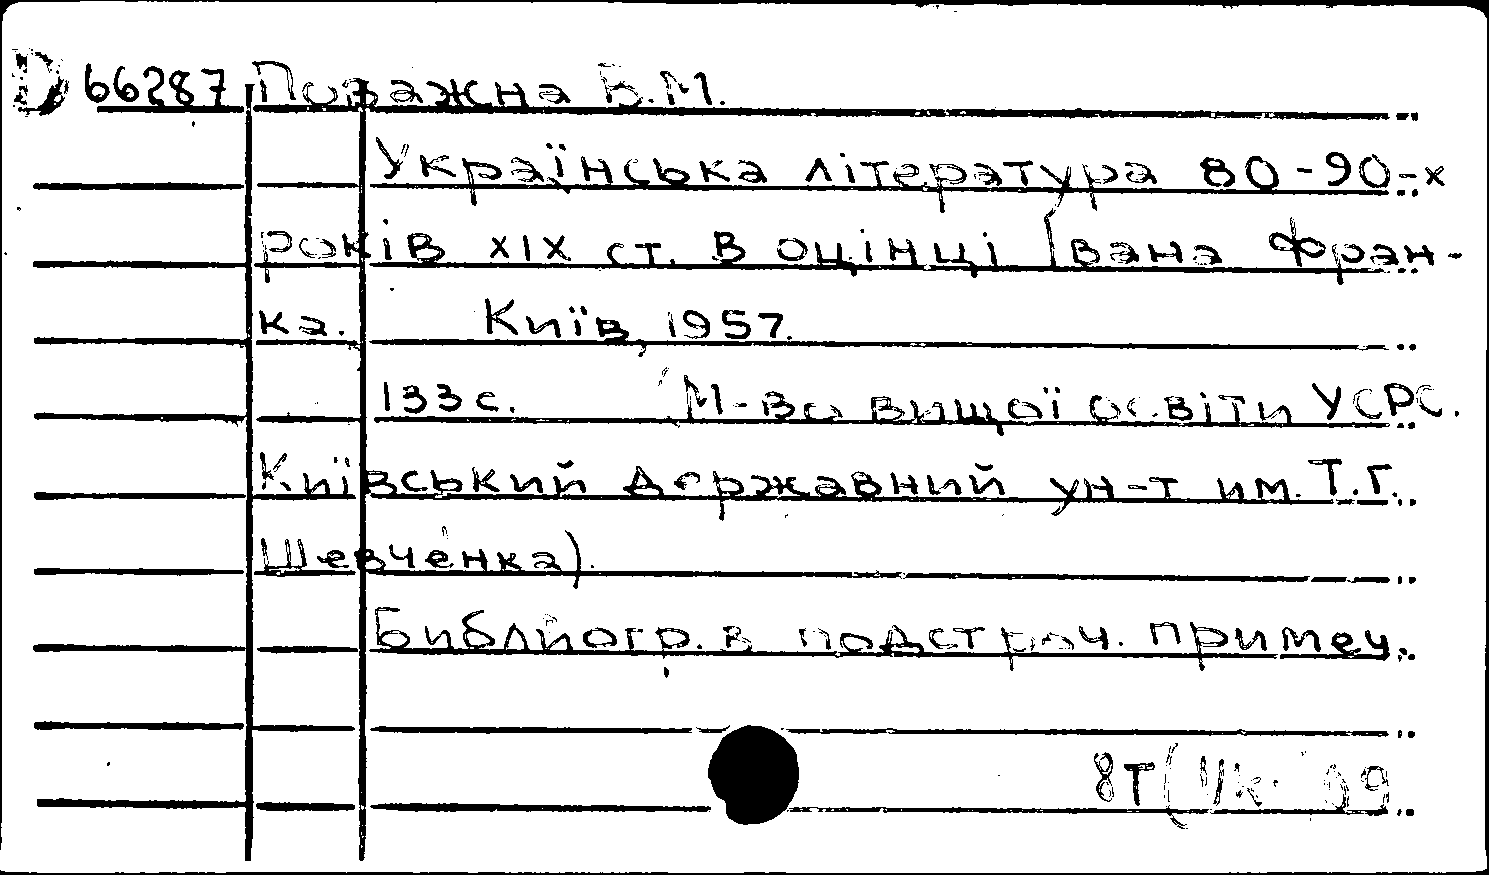 D 66287 Поважна В.М.
Українська література 80-90-х
років XIX ст. в оцінці Івана Фран-
ка. Київ, 1957.
133 с. (М-во вищої освіти УСРС.
Київський державний ун-т им. Т.Г.
Шевченка).
Библиогр. в подстроч. примеч.
8Т(Ук) 09